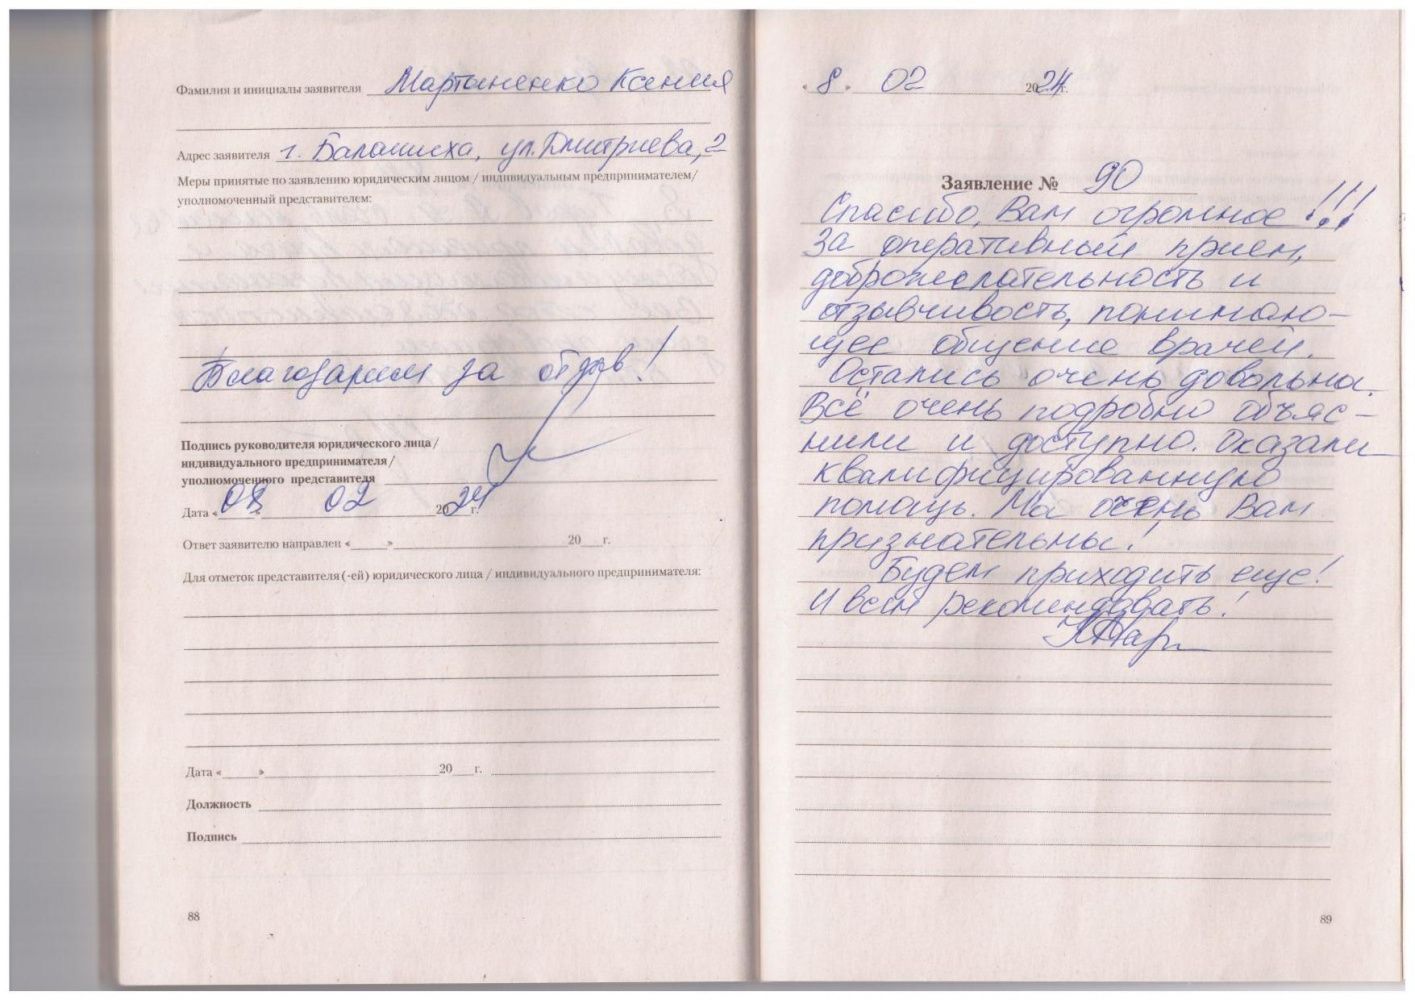 Фамилия и инициалы заявителя Мартыненко Ксения
Адрес заявителя г. Балашиха, ул. Дмитриева, 2
Меры принятые по заявлению юридическим лицом / индивидуальным предпринимателем/
уполномоченный представителем:
Благодарим за отзыв!
Подпись руководителя юридического лица /
индивидуального предпринимателя /
уполномоченного представителя
Дата «08» 02 2024 г.
Ответ заявителю направлен «____» 20___г.
Для отметок представителя (-ей) юридического лица / индивидуального предпринимателя:
Дата «_____» 20___ г.
Должность
Подпись
88
«8» 02 2024г.
Заявление № 90
Спасибо, Вам огромное!!!
За оперативный прием,
доброжелательность и
отзывчивость, понимаю-
щее общение врачей.
Остались очень довольны.
Всё очень подробно объяс-
нили и доступно. Оказали
квалифицированную
помощь. Мы очень Вам
признательны!
Будем приходить еще!
И всем рекомендовать!
89